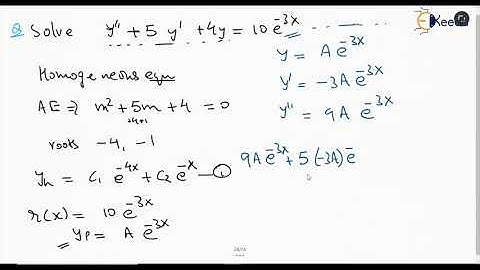 Q. Solve y'' + 5 y' + 4y = 10 e^{-3x}
Homogeneous eqn
AE ⇒ m² + 5m + 4 = 0
+4+1
roots -4, -1
y_h = c₁ e^{-4x} + c₂ e^{-x} — ①
r(x) = 10 e^{-3x}
y_p = A e^{-3x}
y = A e^{-3x}
y' = -3A e^{-3x}
y'' = 9A e^{-3x}
9A e^{-3x} + 5 (-3A) e^{-}